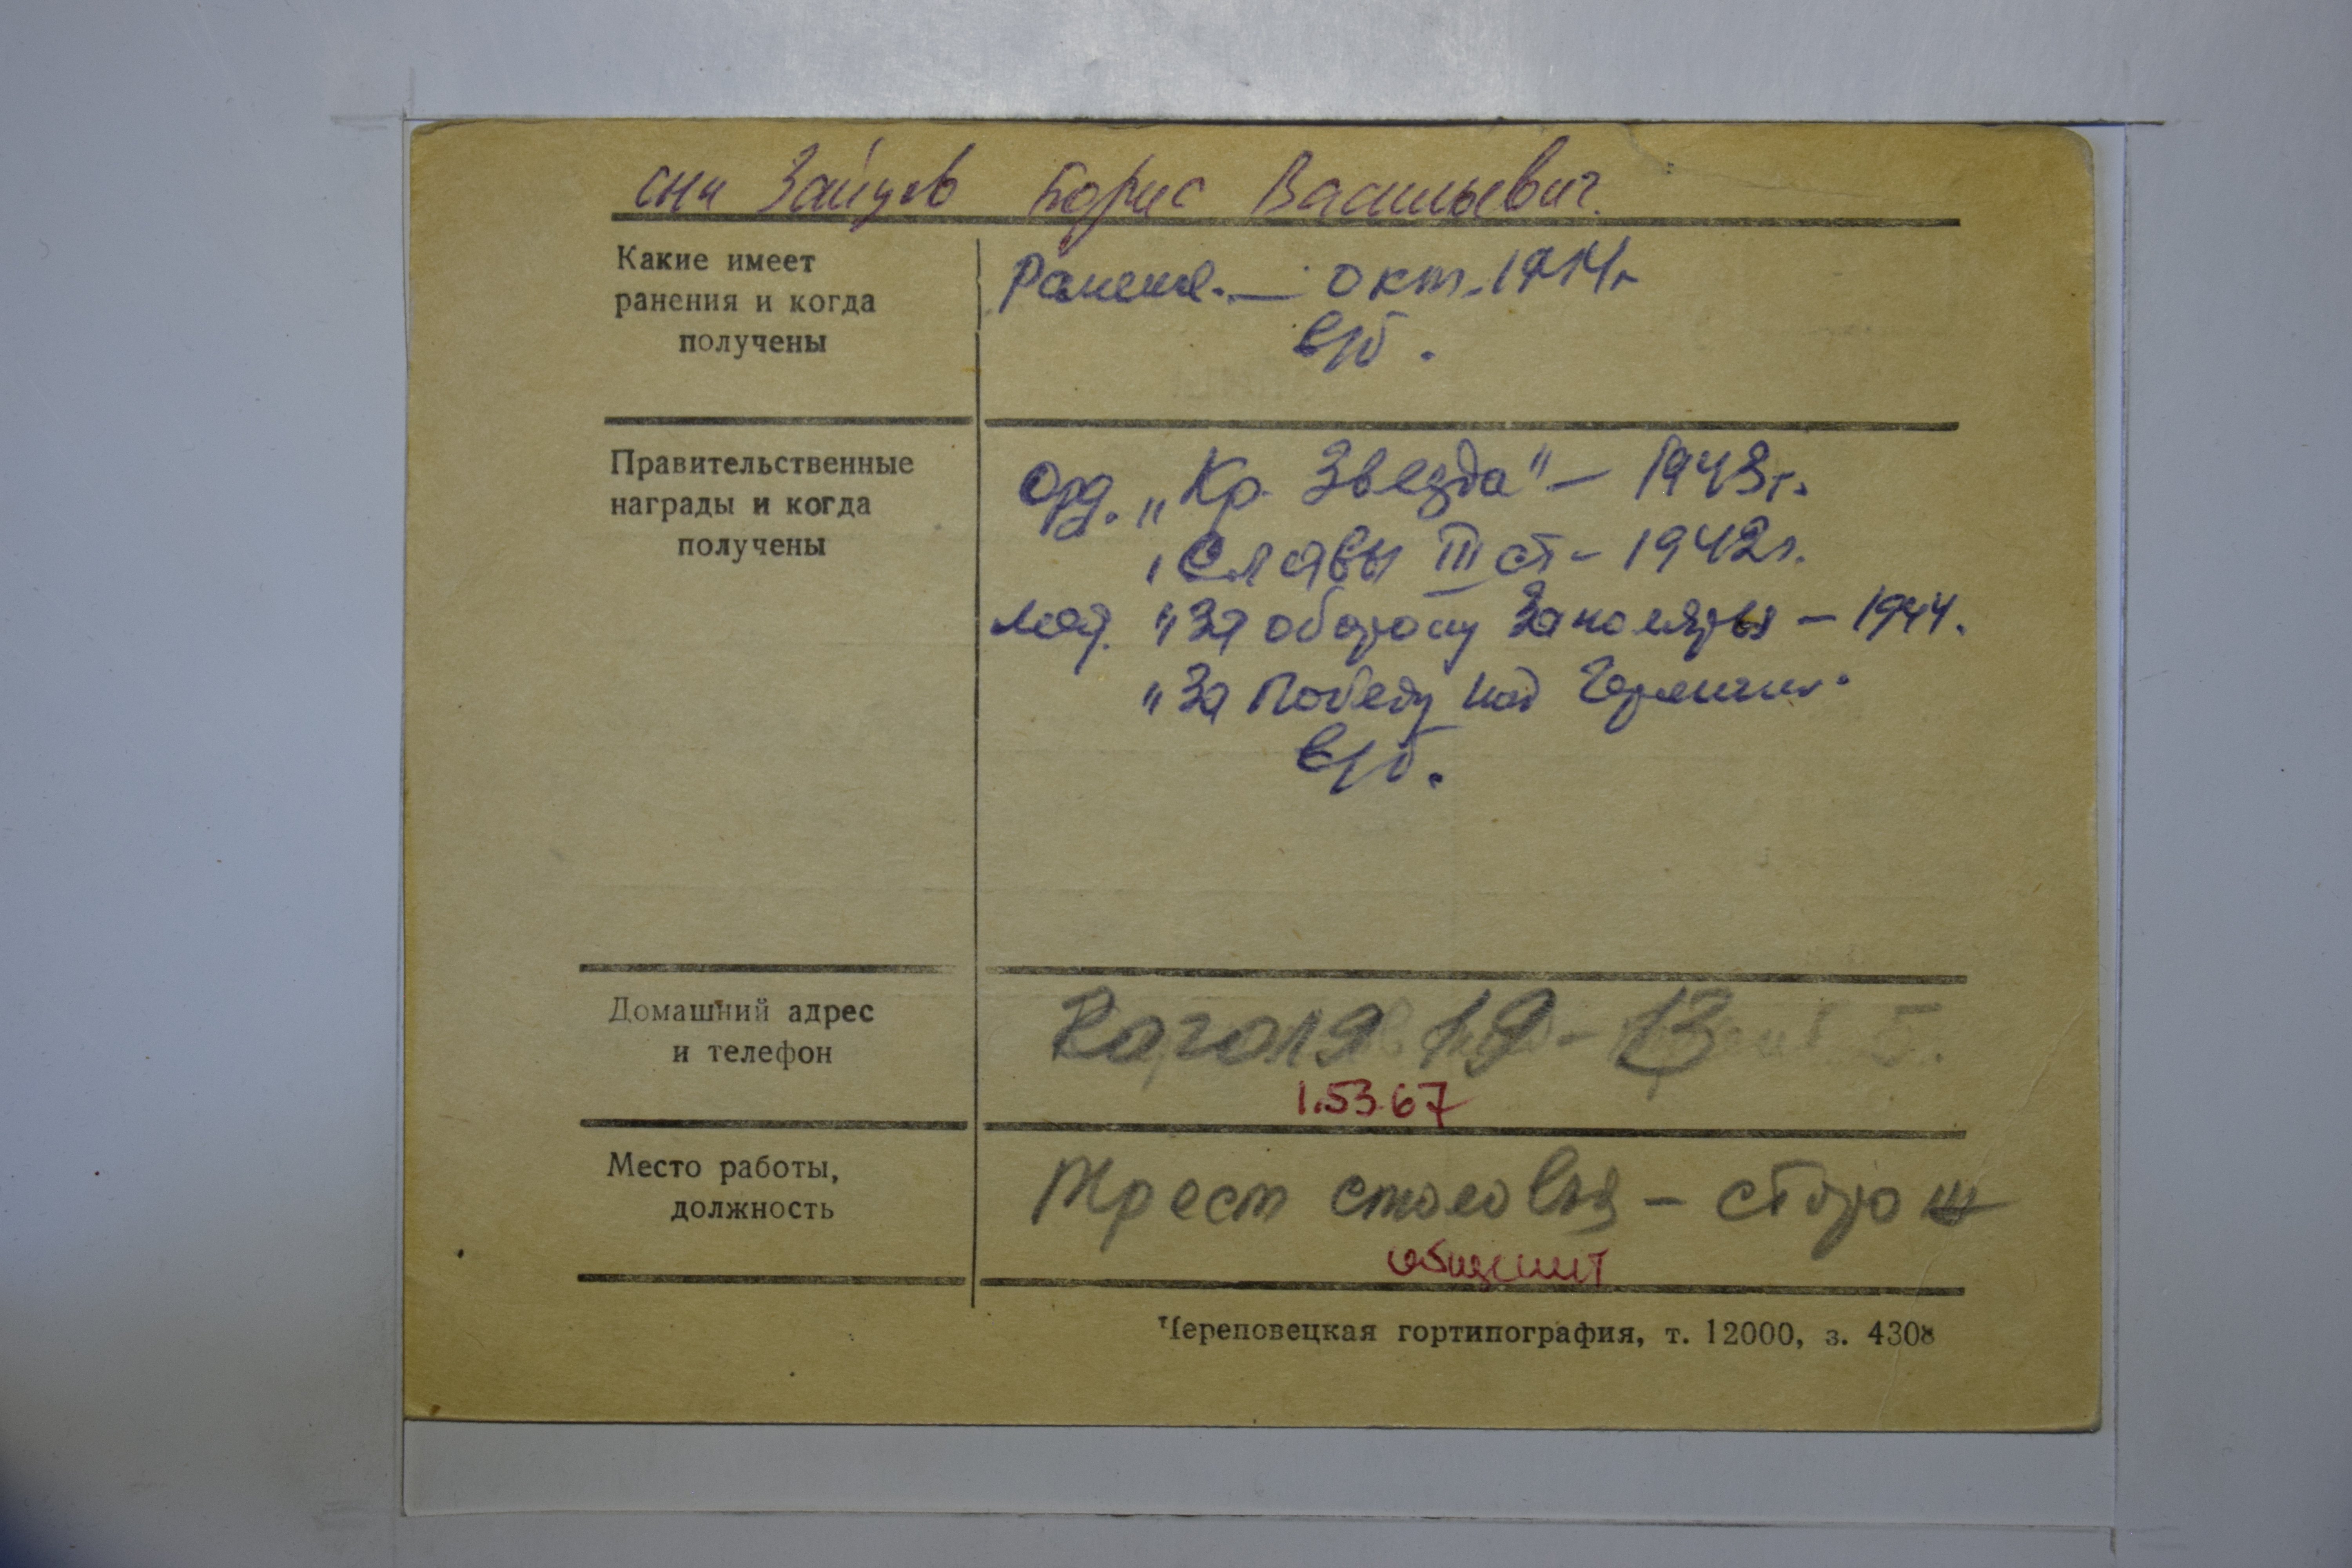 Зайцев Борис Васильевич.
Какие имеет
ранения и когда
получены
Ранение. — окт. 1944г
в/б.
Правительственные
награды и когда
получены
Орд. „Кр. Звезда" — 1943г.
„Славы III ст — 1942г.
мед. "За оборону Заполярья — 1944.
"За Победу над Германией.
в/б.
Домашний адрес
и телефон
Гоголя 19 - 13
1.53.67
Место работы,
должность
Трест столовых — сторож
общежит
Череповецкая гортипография, т. 12000, з. 4308